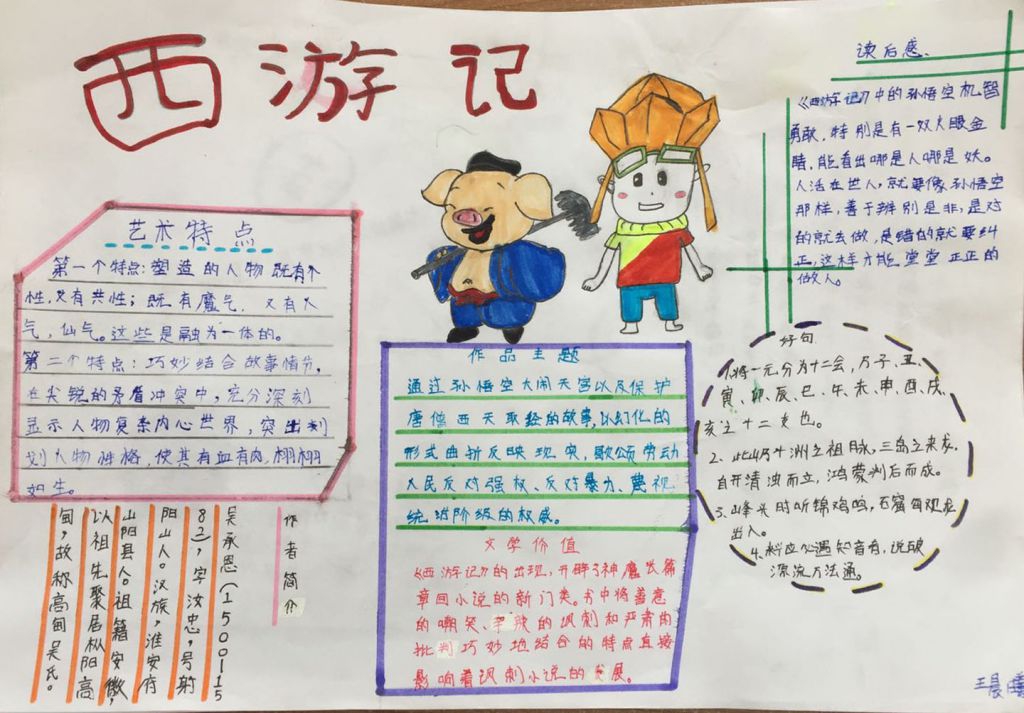 西游记
艺术特点
第一个特点:塑造的人物既有个
性,又有共性;既有魔气,又有人
气,仙气。这些是融为一体的。
第二个特点:巧妙结合故事情节,
在尖锐的矛盾冲突中,充分深刻
显示人物复杂内心世界,突出刻
划人物性格,使其有血有肉,栩栩
如生。
作者简介
吴承恩(1500115
82),字汝忠,号射
阳山人。汉族,淮安府
山阳县人。祖籍安徽,
以祖先聚居枞阳高
甸,故称高甸吴氏。
作品主题
通过孙悟空大闹天宫以及保护
唐僧西天取经的故事,以幻化的
形式曲折反映现实,歌颂劳动
人民反对强权、反对暴力、蔑视
统治阶级的权威。
文学价值
《西游记》的出现,开辟了神魔长篇
章回小说的新门类。书中将善意
的嘲笑、辛的讽刺和严肃的
批判巧妙地结合的特点直接
影响着讽刺小说的发展。
读后感、
《西游记》中的孙悟空机智
勇敢,特别是有一双火眼金
睛,能看出哪是人哪是妖。
人活在世人,就要像孙悟空
那样,善于辨别是非,是对
的就去做,是错的就要纠
正,这样才能堂堂正正的
做人。
好句
1.将一元分为十二会,乃子、丑、
寅、卯、辰、巳、午、未、申、酉、戌、
亥之十二支也。
2、此山乃十洲之祖脉,三岛之来龙,
自开清浊而立,鸿蒙判后而成。
3、峰头时听锦鸡鸣,石窟每观龙
出入。
4.料应必遇知音者,说破
源流万法通。
王晨